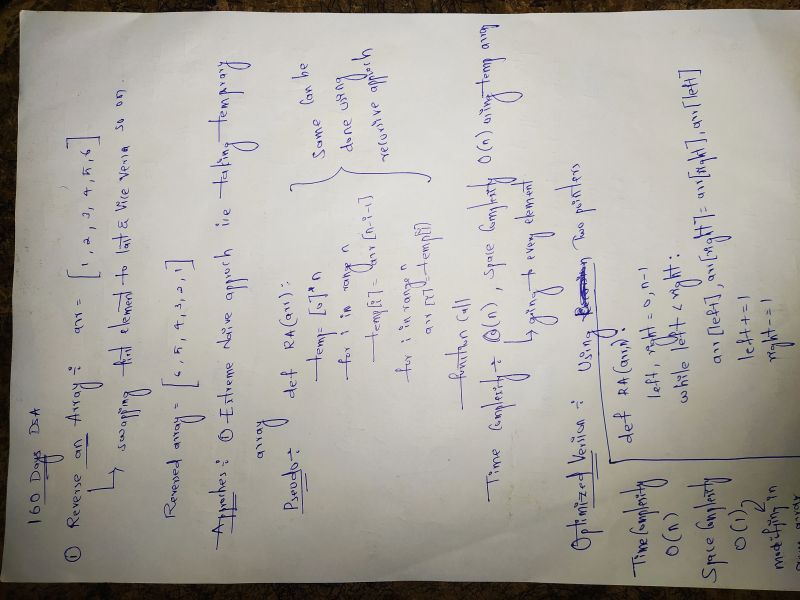 160 Days DSA
① Reverse an Array :- arr = [1, 2, 3, 4, 5, 6]
↳ swapping first element to last & vice versa so on.
Reversed array = [6, 5, 4, 3, 2, 1]
Approches :- ① Extreme naive approch i.e taking temprory
array
Pseudo :- def RA(arr):
temp = [0]*n
for i in range n
temp[i] = arr[n-i-1]
for i in range n
arr[i] = temp[i]
Same can be
done using
recursive approch
function call
Time Complexity :- O(n), Space Complexity O(n) using temp array
↳ going to every element
Optimized Version :- Using Two pointers
def RA(arr,n):
left, right = 0, n-1
while left < right:
arr[left], arr[right] = arr[right], arr[left]
left += 1
right -= 1
Time Complexity
O(n)
Space Complexity
O(1)
modifying in
array